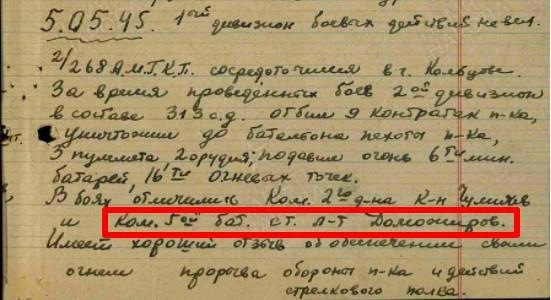 5.05.45. 1ый дивизион боевых действий не вел.
2/268 А.М.Г.К.Г. сосредоточился в г. Кольбцове.
За время проведенных боев 2ой дивизион
в составе 313 с.д. отбил 9 контратак п-ка,
уничтожил до батальона пехоты п-ка,
3 пулемета, 2 орудия; подавил огонь 6ти мин.
батарей, 16ти огневых точек.
В боях отличились Ком. 2го д-на К-н
и Ком. 5ой бат. ст. л-т
Имеет хороший отзыв об обеспечении своим
огнем прорыва обороны п-ка и действий
стрелкового полка.